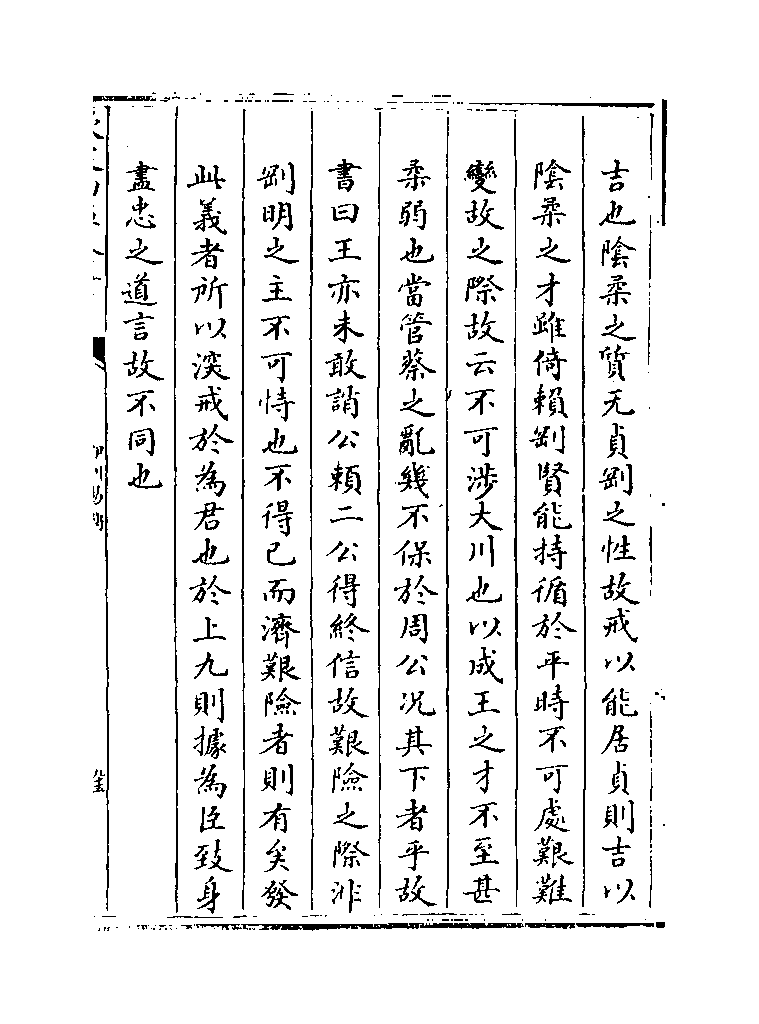 吉也陰柔之質无貞剛之性故戒以能居貞則吉以
陰柔之才雖倚賴剛賢能持循於平時不可處艱難
變故之際故云不可涉大川也以成王之才不至甚
柔弱也當管蔡之亂幾不保於周公况其下者乎故
書曰王亦未敢誚公賴二公得終信故艱險之際非
剛明之主不可恃也不得已而濟艱險者則有矣發
此義者所以深戒於為君也於上九則據為臣致身
盡忠之道言故不同也
伊川易傳